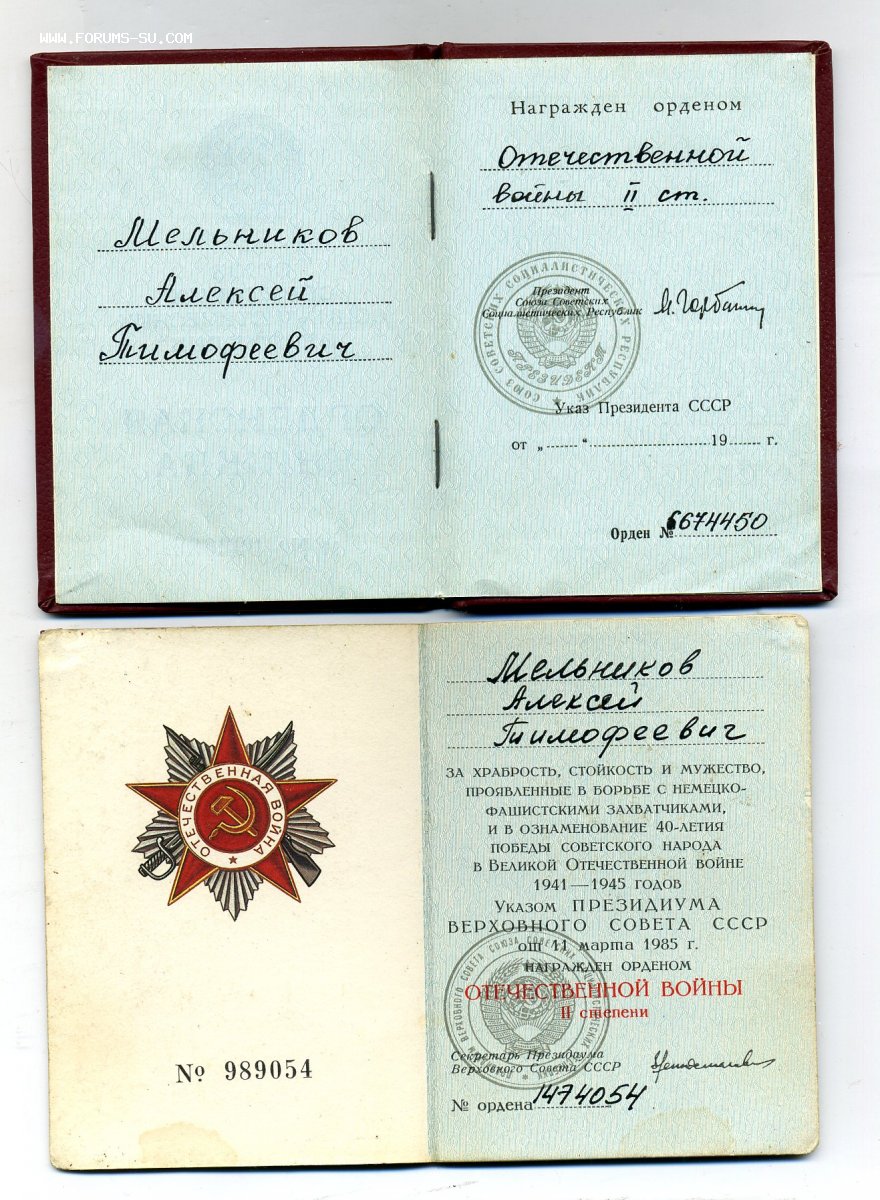 WWW.FORUMS-SU.COM
Мельников
Алексей
Тимофеевич
Награжден орденом
Отечественной
войны II ст.
СОЮЗ СОВЕТСКИХ СОЦИАЛИСТИЧЕСКИХ РЕСПУБЛИК
ПРЕЗИДЕНТ
Президент
Союза Советских
Социалистических Республик
Указ Президента СССР
от „ “ 19 г.
Орден № 6674450
ОТЕЧЕСТВЕННАЯ ВОЙНА
№ 989054
Мельников
Алексей
Тимофеевич
ЗА ХРАБРОСТЬ, СТОЙКОСТЬ И МУЖЕСТВО,
ПРОЯВЛЕННЫЕ В БОРЬБЕ С НЕМЕЦКО-
ФАШИСТСКИМИ ЗАХВАТЧИКАМИ,
И В ОЗНАМЕНОВАНИЕ 40-ЛЕТИЯ
ПОБЕДЫ СОВЕТСКОГО НАРОДА
В ВЕЛИКОЙ ОТЕЧЕСТВЕННОЙ ВОЙНЕ
1941—1945 ГОДОВ
УКАЗОМ ПРЕЗИДИУМА
ВЕРХОВНОГО СОВЕТА СССР
от 11 марта 1985 г.
НАГРАЖДЕН ОРДЕНОМ
ОТЕЧЕСТВЕННОЙ ВОЙНЫ
II степени
Секретарь Президиума
Верховного Совета СССР
№ ордена 1474054